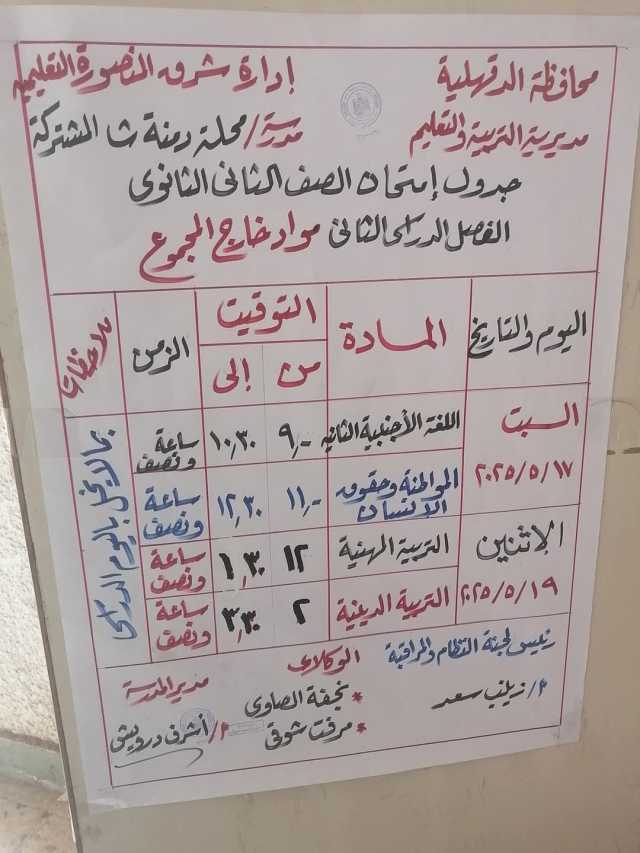 محافظة الدقهلية
إدارة شرق المنصورة التعليمية
مديرية التربية والتعليم
مدرسة/ محلة دمنة ث المشتركة
جدول إمتحان الصف الثانى الثانوى
الفصل الدراسى الثانى مواد خارج المجموع
اليوم والتاريخ المادة التوقيت الزمن ملاحظات
من إلى
السبت ١٧/٥/٢٠٢٥
اللغة الأجنبية الثانيه ٩,- ١٠,٣٠ ساعة ونصف
المواطنة وحقوق الانسان ١١,- ١٢,٣٠ ساعة ونصف
الاثنين ١٩/٥/٢٠٢٥
التربية المهنية ١٢ ١,٣٠ ساعة ونصف
التربية الدينية ٢ ٣,٣٠ ساعة ونصف
بما لا يخل باليوم الدراسى
رئيس لجنة النظام والمراقبة
أ/ زينب سعد
الوكلاء
* نجفة الصاوى
* مرفت شوقى
مدير المدرسة
أ/ أشرف درويش